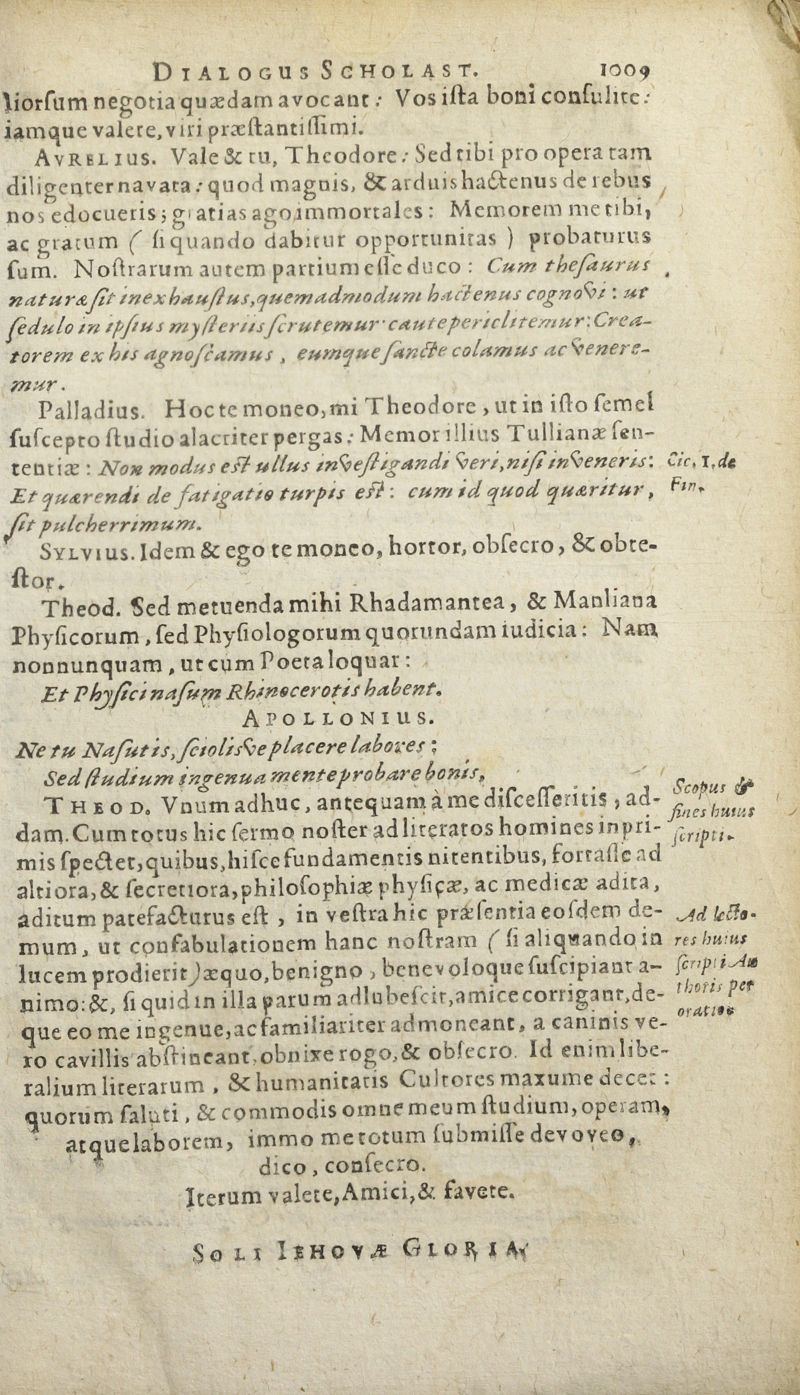 DIALOGUS SCHOLAST. 1009
liorſum negotia quædam avocant: Vos iſta boni conſulite:
iamque valete, viri præſtantiſſimi.
AVRELIUS. Vale & tu, Theodore: Sed tibi pro opera tam
diligenter navata: quod magnis, & arduis hactenus de rebus
nos edocueris; gratias ago immortales: Memorem me tibi,
ac gratum ( ſi quando dabitur opportunitas ) probaturus
ſum. Noſtrarum autem partium eſſe duco: Cum theſaurus
naturæ ſit inexhauſtus, quemadmodum hactenus cognovi: ut
ſedulo in ipſius myſteriis ſcrutemur: caute periclitemur: Crea-
torem ex his agnoſcamus, eumque ſancte colamus ac venere-
mur.
Palladius. Hoc te moneo, mi Theodore, ut in iſto ſemel
ſuſcepto ſtudio alacriter pergas: Memor illius Tullianæ ſen-
tentiæ: Non modus eſt ullus inveſtigandi veri, niſi inveneris: Cic. 1. de
Et quærendi defatigatio turpis eſt: cum id quod quæritur, Fin.
ſit pulcherrimum.
SYLVIUS. Idem & ego te moneo, hortor, obſecro, & obte-
ſtor.
Theod. Sed metuenda mihi Rhadamantea, & Manliana
Phyſicorum, ſed Phyſiologorum quorundam iudicia: Nam
nonnunquam, ut cum Poeta loquar:
Et Phyſici naſum Rhinocerotis habent.
APOLLONIUS.
Ne tu Naſutis, ſciolisve placere labores;
Sed ſtudium ingenua mente probare bonis.
THEOD. Vnum adhuc, antequam à me diſceſſeritis, ad- Scopus &
dam. Cum totus hic ſermo noſter ad literatos homines in pri- fines huius
mis ſpectet, quibus, hiſce fundamentis nitentibus, fortaſſe ad ſcripti.
altiora, & ſecretiora, philoſophiæ phyſicæ, ac medicæ adita,
aditum patefacturus eſt, in veſtra hic præſentia eoſdem de- Ad lecto-
mum, ut confabulationem hanc noſtram ( ſi aliquando in res huius
lucem prodierit) æquo, benigno, benevoloque ſuſcipiant a- ſcripti Au
nimo: &, ſi quid in illa parum adlubeſcit, amice corrigant, de- thoris per
que eo me ingenue, ac familiariter admoneant, a caninis ve- oratio
ro cavillis abſtineant, obnixe rogo, & obſecro. Id enim libe-
ralium literarum, & humanitatis Cultores maxume decet:
quorum ſaluti, & commodis omne meum ſtudium, operam,
atque laborem, immo me totum ſubmiſſe devoveo,
dico, conſecro.
Iterum valete, Amici, & favete.
SOLI IEHOVÆ GLORIA.